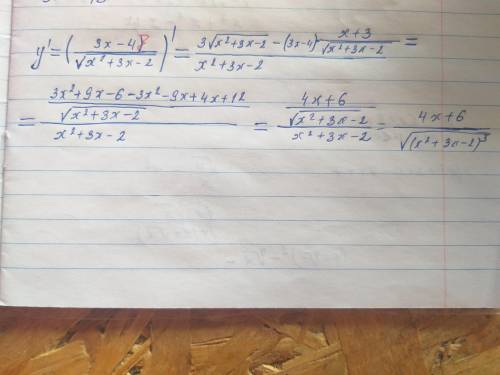 y' = ( (3x-4) / √(x²+3x-2) )' = ( 3√(x²+3x-2) - (3x-4) (x+3)/√(x²+3x-2) ) / (x²+3x-2) =
= ( (3x²+9x-6-3x²-9x+4x+12) / √(x²+3x-2) ) / (x²+3x-2) = ( (4x+6) / √(x²+3x-2) ) / (x²+3x-2) = (4x+6) / √((x²+3x-2)³)